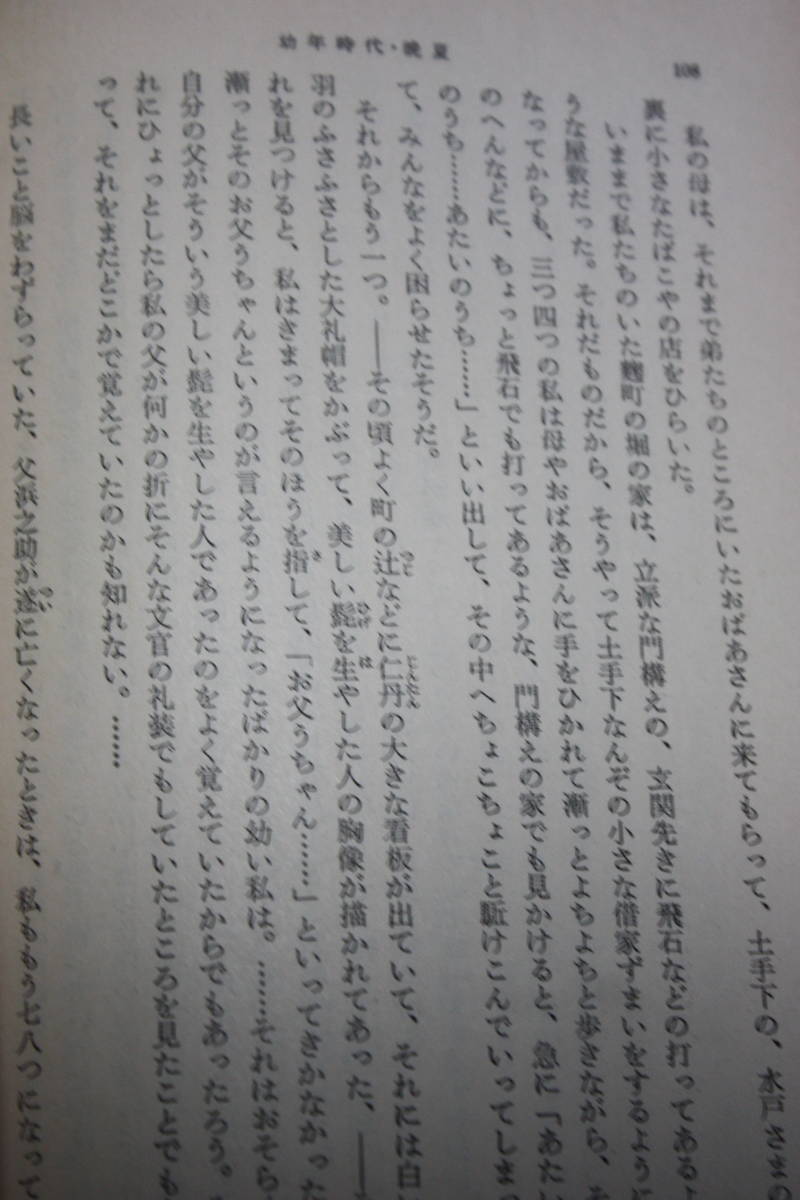 幼年時代・晩夏
108
私の母は、それまで弟たちのところにいたおばあさんに来てもらって、土手下の、水戸さまの
裏に小さなたばこやの店をひらいた。
いままで私たちのいた麹町の堀の家は、立派な門構えの、玄関先きに飛石などの打ってあるよ
うな屋敷だった。それだものだから、そうやって土手下なんぞの小さな借家ずまいをするように
なってからも、三つ四つの私は母やおばあさんに手をひかれて漸っとよちよちと歩きながら、そ
のへんなどに、ちょっと飛石でも打ってあるような、門構えの家でも見かけると、急に「あたい
のうち……あたいのうち……」といい出して、その中へちょこちょこと駈けこんでいってしまっ
て、みんなをよく困らせたそうだ。
それからもう一つ。――その頃よく町の辻などに仁丹の大きな看板が出ていて、それには白い
羽のふさふさとした大礼帽をかぶって、美しい髭を生やした人の胸像が描かれてあった、――
れを見つけると、私はきまってそのほうを指して、「お父うちゃん……」といってきかなかった
漸っとそのお父うちゃんというのが言えるようになったばかりの幼い私は。……それはおそら
自分の父がそういう美しい髭を生やした人であったのをよく覚えていたからでもあったろう。
れにひょっとしたら私の父が何かの折にそんな文官の礼装でもしていたところを見たことでも
って、それをまだどこかで覚えていたのかも知れない。……
長いこと脳をわずらっていた、父浜之助が遂に亡くなったときは、私ももう七八つになって